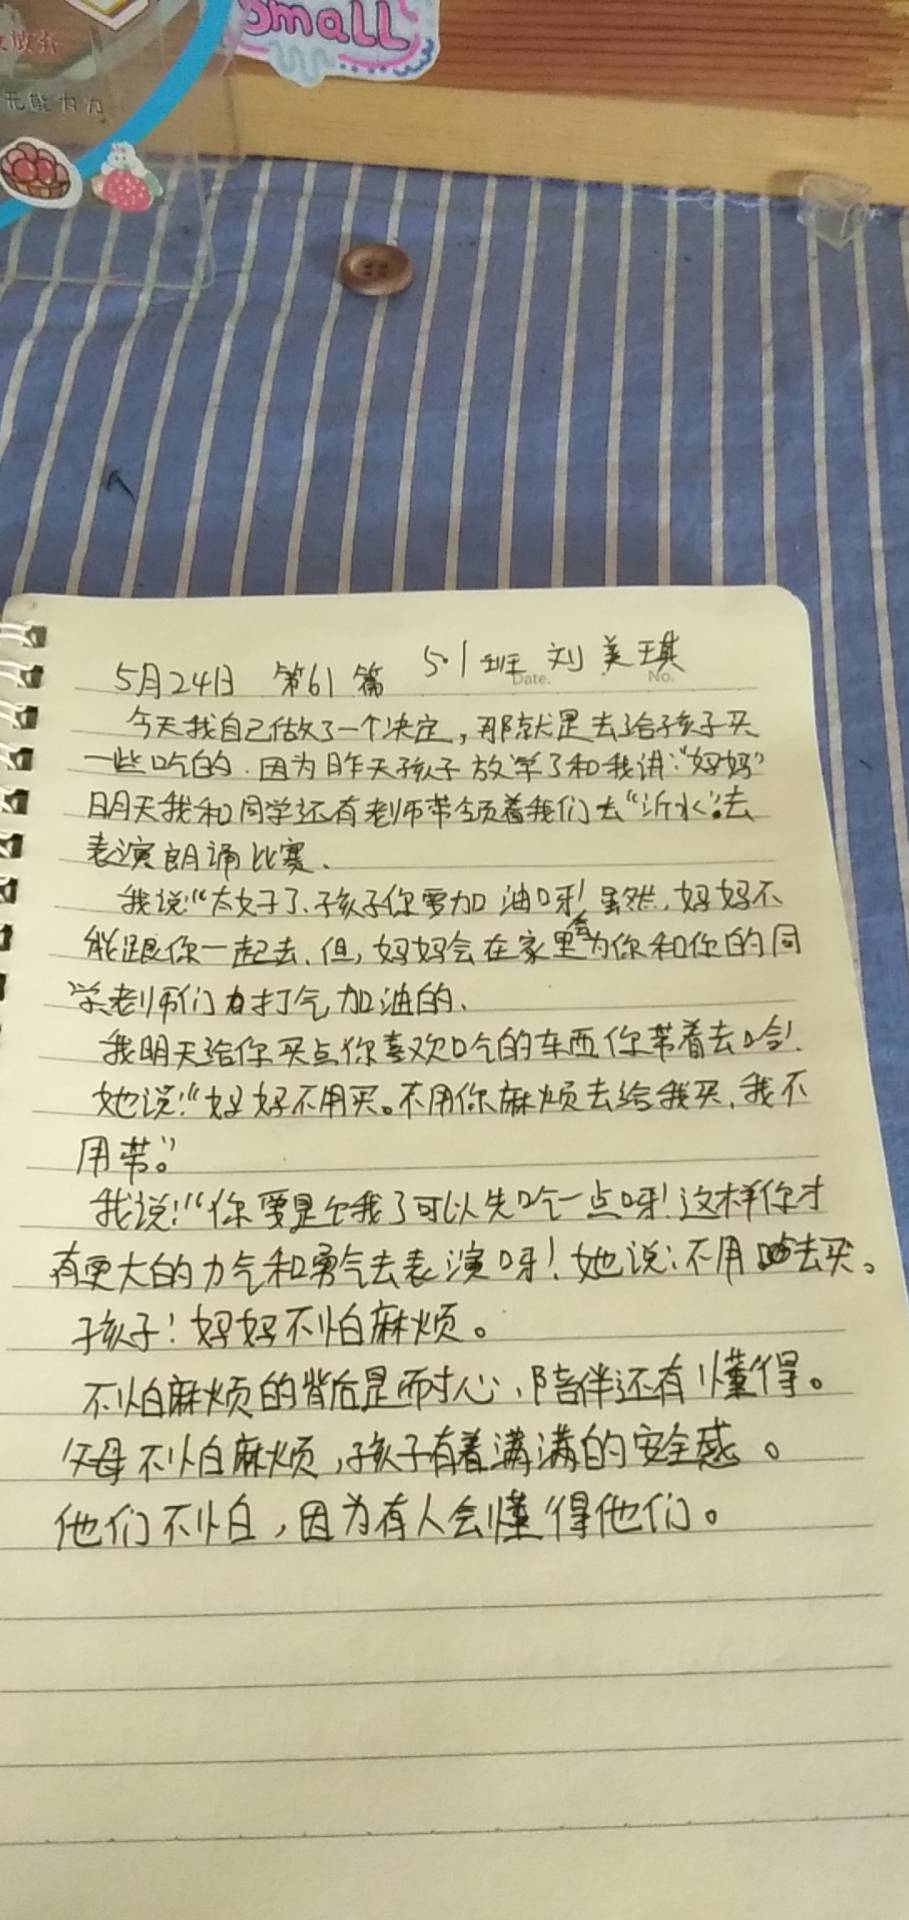 Small
放弃
无能为力
5月24日 第61篇 5.1班 刘美琪
Date.
No.
今天我自己做了一个决定,那就是去给孩子买
一些吃的.因为昨天孩子放学了和我讲:"妈妈"
明天我和同学还有老师带领着我们去"沂水".去
表演朗诵比赛、
我说:"太好了、孩子你要加油呀!虽然,妈妈不
能跟你一起去、但,妈妈会在家里会为你和你的同
学老师们打气加油的、
我明天给你买点你喜欢吃的东西你带着去哈!
她说:"妈妈不用买。不用你麻烦去给我买,我不
用带。"
我说:"你要是饿了可以先吃一点呀!这样你才
有更大的力气和勇气去表演呀!她说:不用去买。
孩子!妈妈不怕麻烦。
不怕麻烦的背后是耐心、陪伴还有懂得。
父母不怕麻烦,孩子有着满满的安全感。
他们不怕,因为有人会懂得他们。